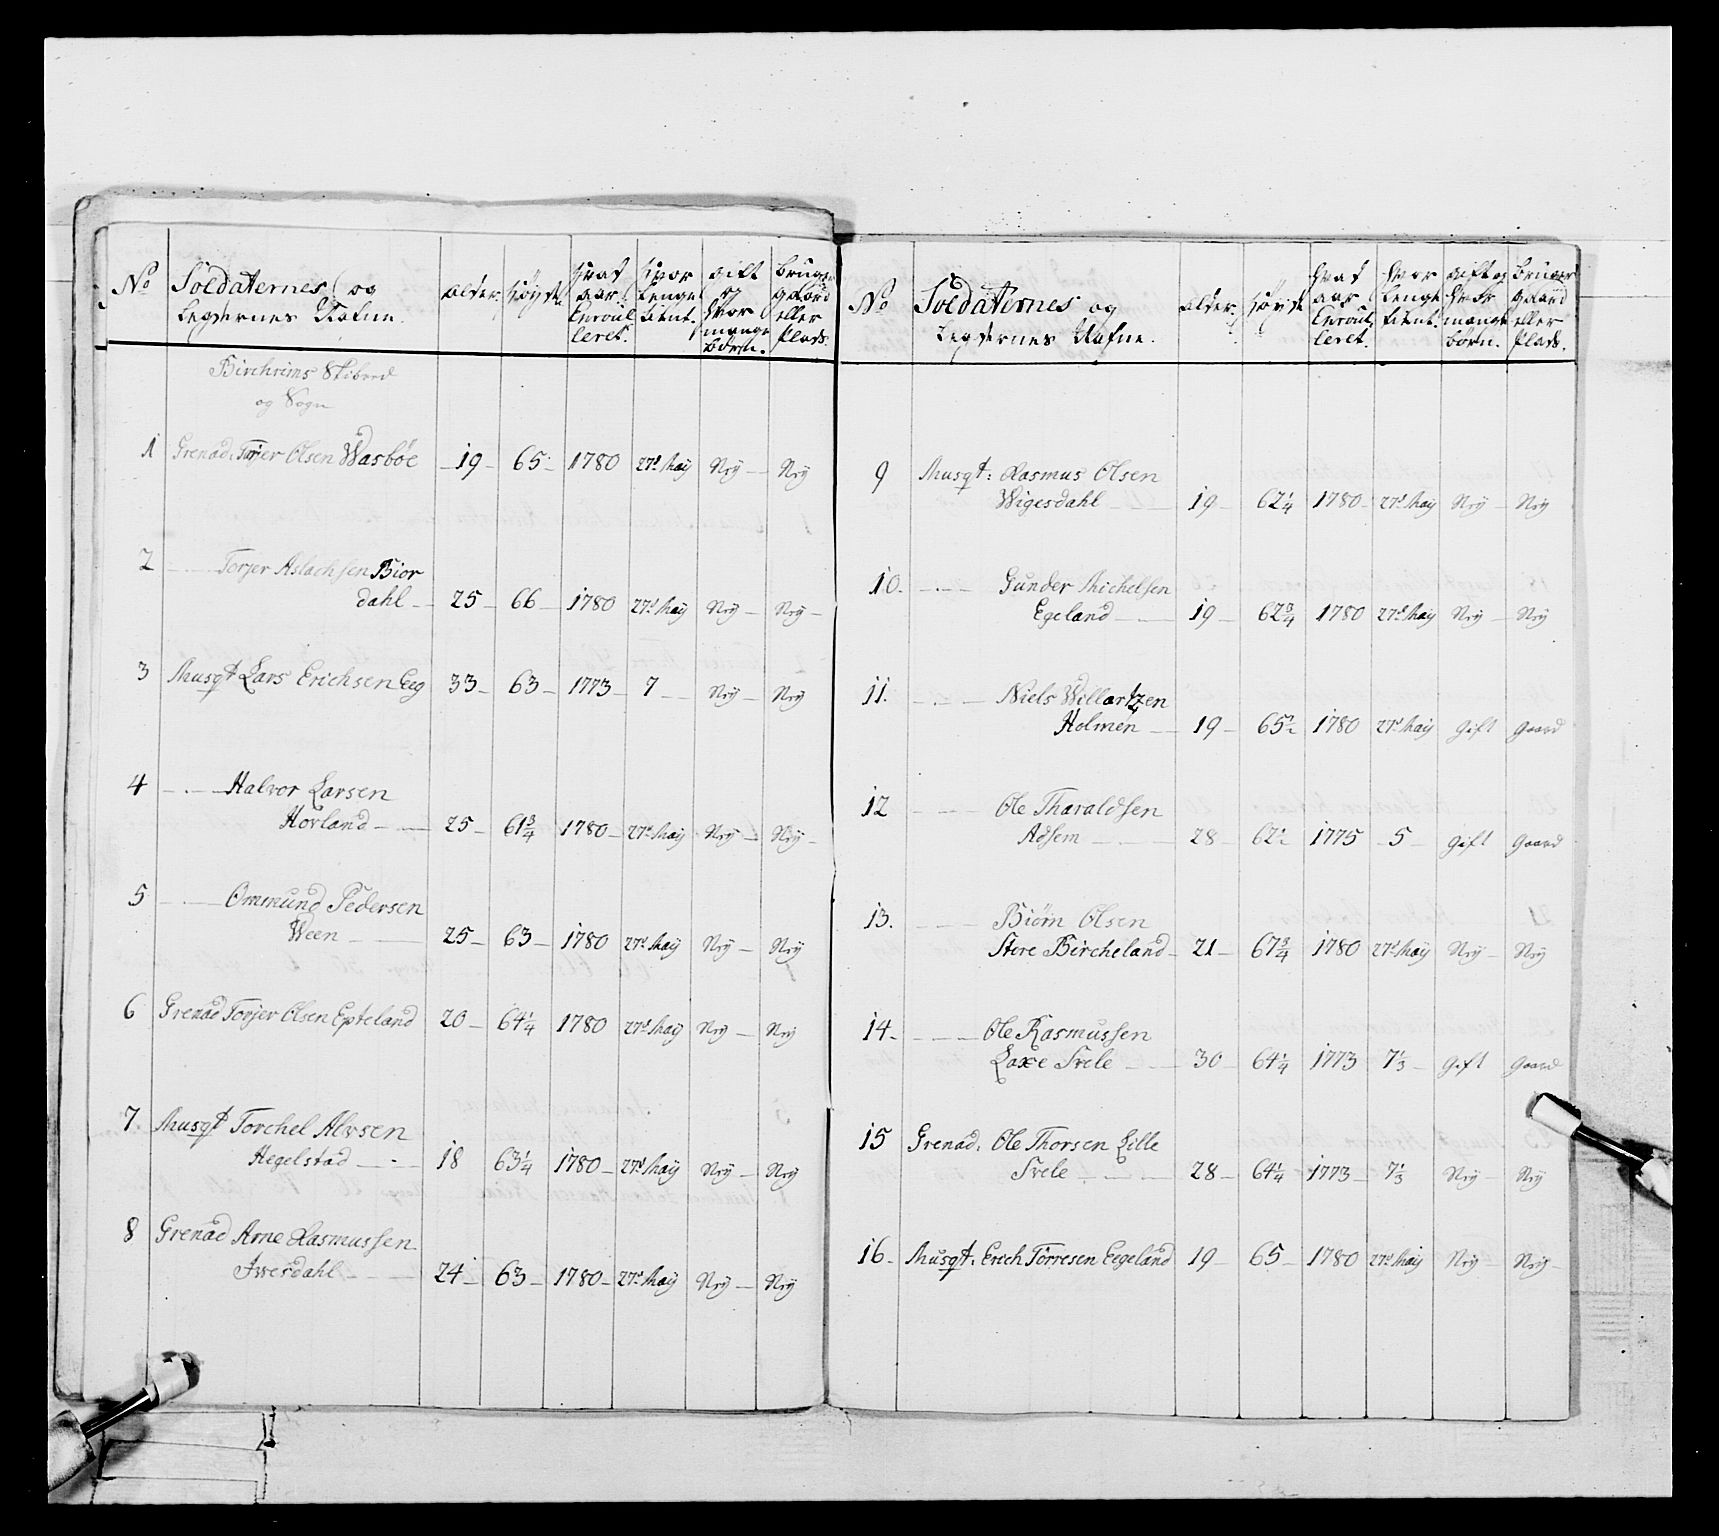 No Soldaternes og Legdernes Nafne. alder. høyde. Hvad aar Enroul leret. Hvor lenge tient. gift og Hvor mange børn. bruger gaard eller Plads.
Birchrims Skibred
og Sogn
1 Grenad. Torjer Olsen Wasbøe 19 65 1780 27d Maij Nej Nej
2 Torjer Aslachsen Bior
dahl 25 66 1780 27d Maij Nej Nej
3 Musqt Lars Erichsen Eeg 33 63 1773 7 Nej Nej
4 Halvor Larsen
Hovland 25 61 3/4 1780 27d Maij Nej Nej
5 Ommund Pedersen
Ween 25 63 1780 27d Maij Nej Nej
6 Grenad Torjer Olsen Epteland 20 64 1/4 1780 27d Maij Nej Nej
7 Musqt Torchel Alvsen
Hegelstad 18 63 1/4 1780 27d Maij Nej Nej
8 Grenad Arne Rasmussen
Ivesdahl 24 63 1780 27d Maij Nej Nej
No Soldaternes og Legdernes Nafne. alder. høyde Hvad aar Enroul leret. Hvor lenge tient. gift og Hvor mange børn. bruger gaard eller Plads.
9 Musqt: Rasmus Olsen
Wigesdahl 19 62 1/4 1780 27d Maij Nej Nej
10. Gunder Michelsen
Egeland 19 62 3/4 1780 27d Maij Nej Nej
11. Niels Willartzen
Holmen 19 65 1/2 1780 27d Maij Gift Gaard
12 Ole Tharaldsen
Adsem 28 62 1/2 1775 5 Gift Gaard
13. Biørn Olsen
Store Bircheland 21 67 3/4 1780 27d Maij Nej Nej
14. Ole Rasmussen
Laxe Svele 30 64 1/4 1773 7 1/3 Gift Gaard
15 Grenad. Ole Thorsen Lille
Svele 28 64 1/4 1773 7 1/3 Nej Nej
16. Musqt: Erich Tørresen Eegeland 19 65 1780 27d Maij Nej Nej